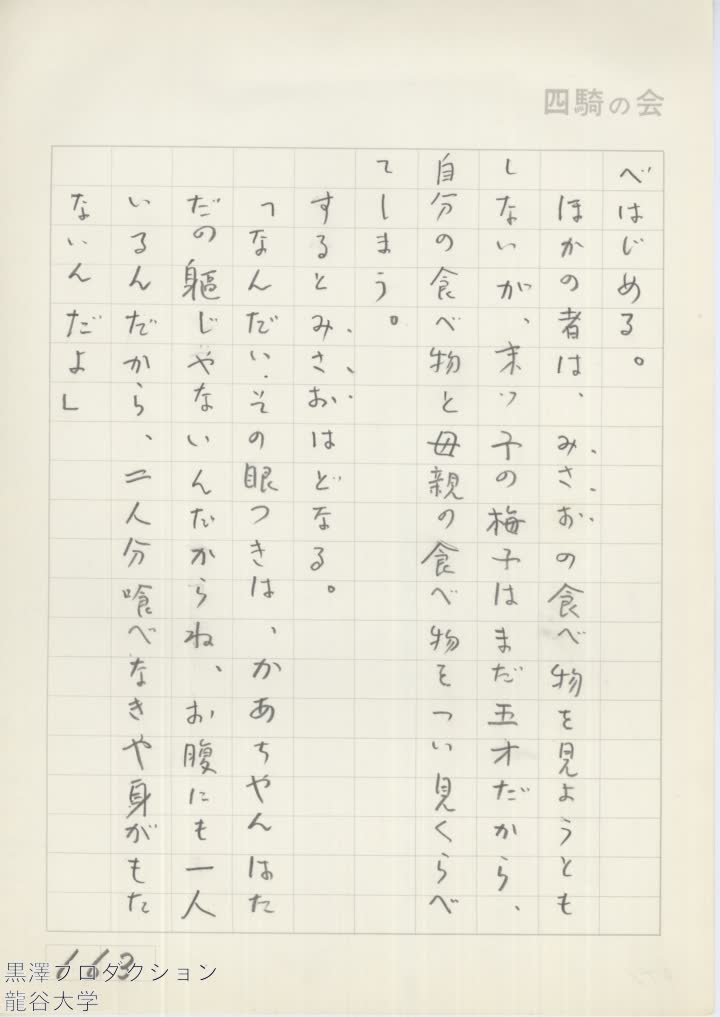 四騎の会
べはじめる。
ほかの者は、みさおの食べ物を見ようとも
しないが、末ッ子の梅子はまだ五才だから、
自分の食べ物と母親の食べ物をつい見くらべ
てしまう。
するとみさおはどなる。
「なんだい、その眼つきは、かあちやんはた
だの軀じやないんだからね、お腹にも一人
いるんだから、二人分喰べなきや身がもた
ないんだよ」
113
黒澤プロダクション
龍谷大学